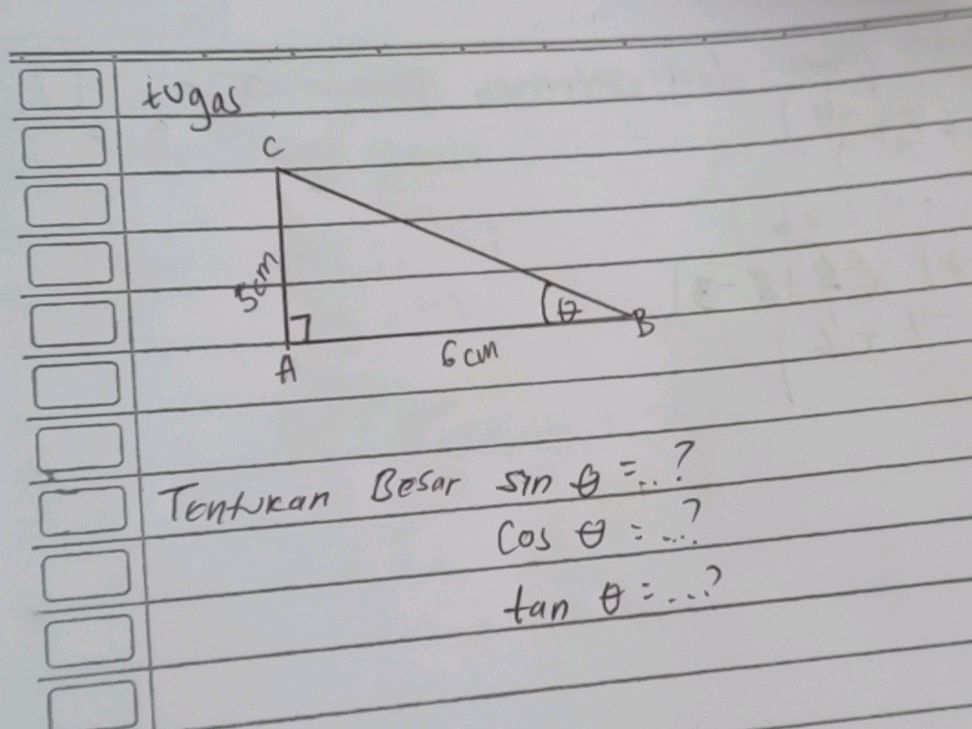 tugas
C
5cm
θ
B
A
6 cm
Tentukan Besar sin θ =..?
Cos θ = ...?
tan θ = ...?